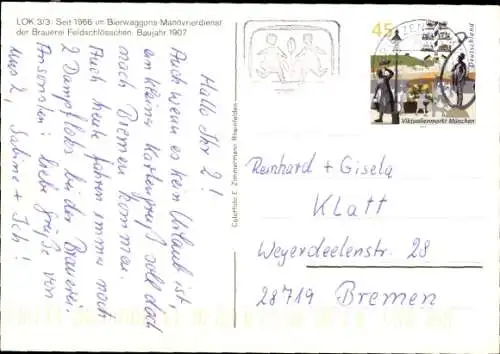 LOK 3/3: Seit 1966 im Bierwaggons-Manövrierdienst
der Brauerei Feldschlösschen. Baujahr 1907
Hallo Ihr 2!
Auch wenn es kein Urlaub ist
ein kleiner Kartengruß soll doch
nach Bremen kommen.
Auch heute fahren immer noch
2 Dampfloks bei der Brauerei.
Ansonsten: liebe Grüße von
uns 2, Sabine + Ich!
Colorfoto E. Zimmermann Rheinfelden
45
Deutschland
Viktualienmarkt München
Reinhard + Gisela
Klatt
Weyerdeelenstr. 28
28719 Bremen